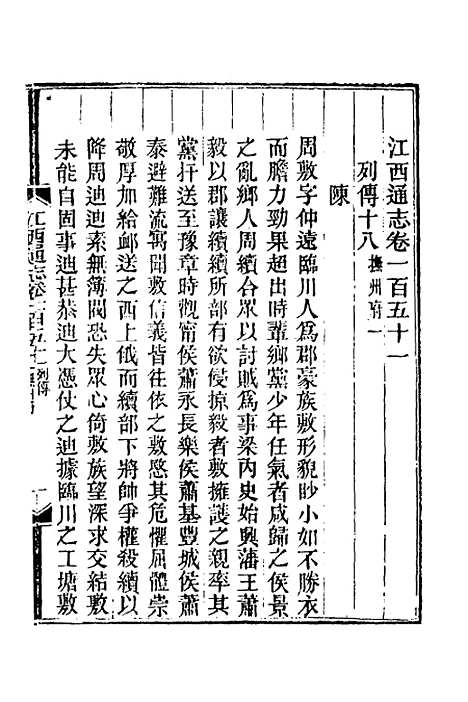 江西通志卷一百五十一
列傳十八 撫州府一
陳
周敷字仲遠臨川人爲郡豪族敷形貌眇小如不勝衣
而膽力勁果超出時輩鄉黨少年任氣者咸歸之侯景
之亂鄉人周續合眾以討賊爲事梁內史始興藩王蕭
毅以郡讓續續所部有欲侵掠毅者敷擁護之親率其
黨扞送至豫章時觀甯侯蕭永長樂侯蕭基豐城侯蕭
泰避難流寓聞敷信義皆往依之敷愍其危懼屈體崇
敬厚加給䘏送之西上俄而續部下將帥爭權殺續以
降周迪迪素無簿閥恐失眾心倚敷族望深求交結敷
未能自固事迪甚恭迪大憑仗之迪據臨川之工塘敷
江西通志卷一百五十一 列傳